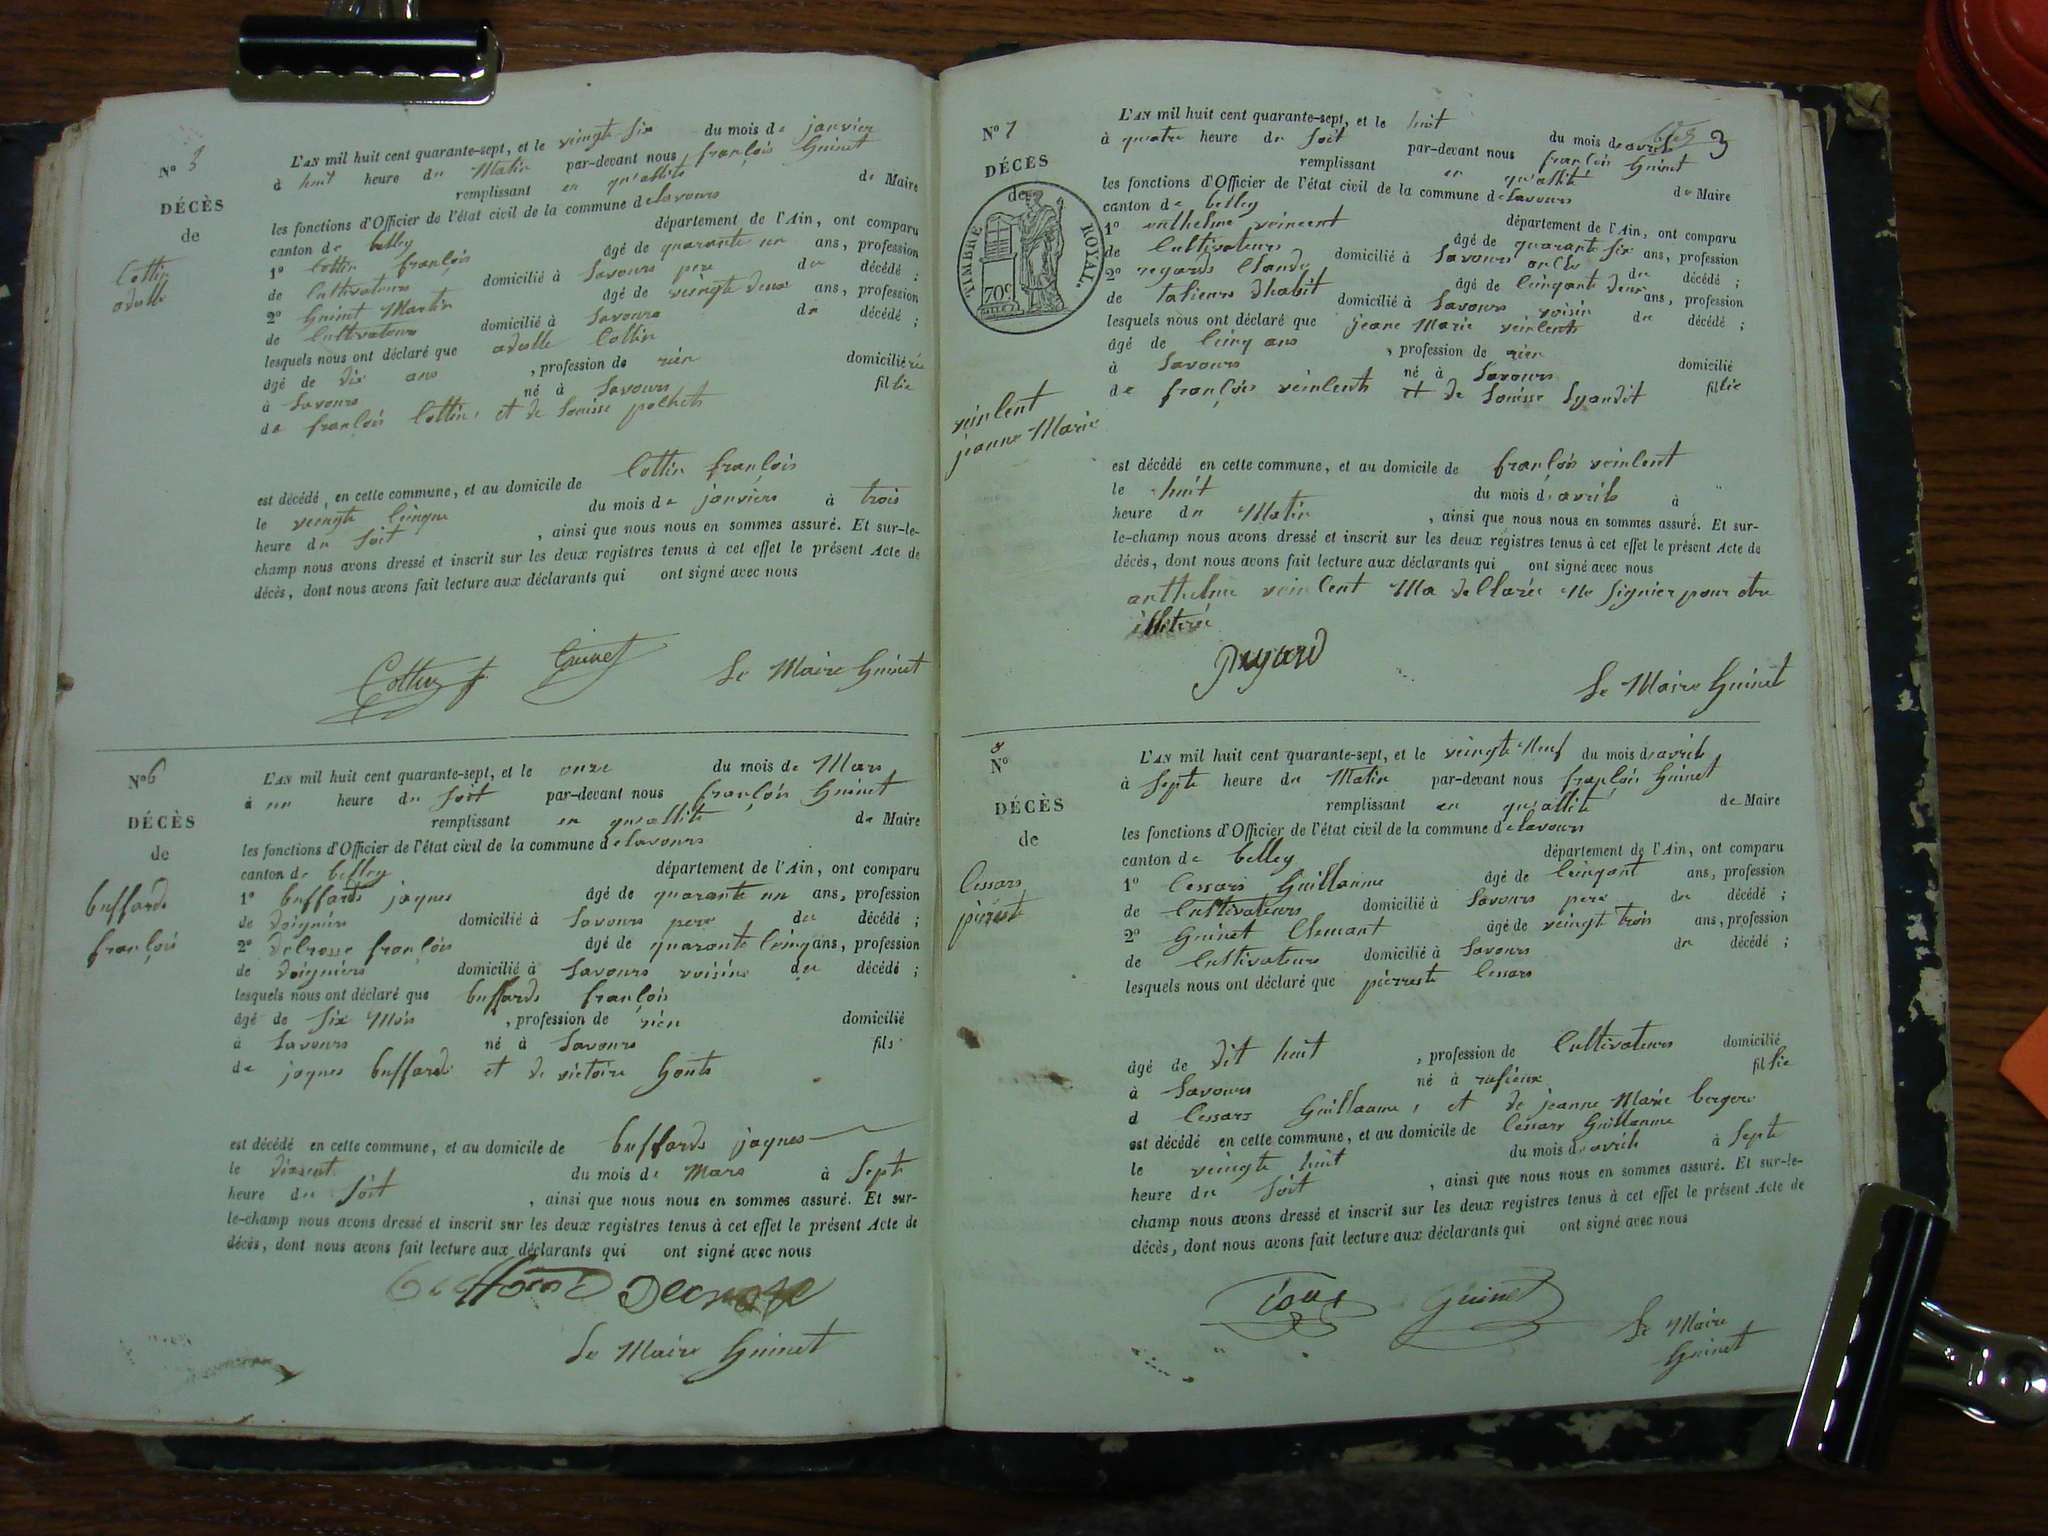 N° 3
DÉCÈS
de
Cottin
adolle
L'AN mil huit cent quarante-sept, et le veingte six du mois de janvier
à huit heure du Matin par-devant nous françois Guinet
remplissant en qu'allité de Maire
les fonctions d'Officier de l'état civil de la commune de lavours
canton de belley département de l'Ain, ont comparu
1° Cottin françois âgé de quarante un ans, profession
de Cultivateurs domicilié à Lavours pere du décédé ;
2° Guinet Martin âgé de veingte deux ans, profession
de Cultivateurs domicilié à Lavours du décédé ;
lesquels nous ont déclaré que adolle Cottin
âgé de dix ans , profession de rien domicilié
à Lavours né à Lavours fillie
de françois Cottin, et de Louisse
est décédé en cette commune, et au domicile de Cottin françois
le veingte cinque du mois de janviers à trois
heure du soit , ainsi que nous nous en sommes assuré. Et sur-le-
champ nous avons dressé et inscrit sur les deux registres tenus à cet effet le présent Acte de
décès, dont nous avons fait lecture aux déclarants qui ont signé avec nous
Cottin Guinet Le Maire Guinet
N° 6
DÉCÈS
de
buffards
françois
L'AN mil huit cent quarante-sept, et le onze du mois de Mars
à un heure du soit par-devant nous françois Guinet
remplissant en qu'allité de Maire
les fonctions d'Officier de l'état civil de la commune de lavours
canton de belley département de l'Ain, ont comparu
1° buffards jaques âgé de quarante un ans, profession
de doignier domicilié à Lavours pere du décédé ;
2° delrosse françois âgé de quarante cinq ans, profession
de doigniers domicilié à Lavours voisins du décédé ;
lesquels nous ont déclaré que buffards françois
âgé de six Mois , profession de rien domicilié
à Lavours né à Lavours fils
de jaques buffards et de victoire Gonts
est décédé en cette commune, et au domicile de buffards jaques
le dixsent du mois de Mars à Septe
heure du soit , ainsi que nous nous en sommes assuré. Et sur-
le-champ nous avons dressé et inscrit sur les deux registres tenus à cet effet le présent Acte de
décès, dont nous avons fait lecture aux déclarants qui ont signé avec nous
Buffard Decrose
Le Maire Guinet
3
N° 7
DÉCÈS
de
TIMBRE ROYAL.
70c
veinlent
jeanne Marie
L'AN mil huit cent quarante-sept, et le huit du mois de avril
à quatre heure du soit par-devant nous françois Guinet
remplissant en qu'allité de Maire
les fonctions d'Officier de l'état civil de la commune de lavours
canton de belley département de l'Ain, ont comparu
1° anthelme veincent âgé de quarante six ans, profession
de Cultivateurs domicilié à Lavours oncle du décédé ;
2° regards Claude âgé de cinquante deux ans, profession
de talieurs dhabit domicilié à Lavours voisin du décédé ;
lesquels nous ont déclaré que jeane Marie veinlents
âgé de cinq ans , profession de rien domicilié
à Lavours né à Lavours fillie
de françois veinlents et de Louisse
est décédé en cette commune, et au domicile de françois veinlent
le huit du mois de avrils à "
heure du Matin , ainsi que nous nous en sommes assuré. Et sur-
le-champ nous avons dressé et inscrit sur les deux registres tenus à cet effet le présent Acte de
décès, dont nous avons fait lecture aux déclarants qui ont signé avec nous
anthelme veinlent Ma dellarée Ne signier pour etre
illiterée
Le Maire Guinet
N° 8
DÉCÈS
de
Cessars
pierrete
L'AN mil huit cent quarante-sept, et le veingte Neuf du mois de avrils
à Septe heure du Matin par-devant nous françois Guinet
remplissant en qu'allité de Maire
les fonctions d'Officier de l'état civil de la commune de lavours
canton de belley département de l'Ain, ont comparu
1° Cessars Guillaume âgé de cinqant ans, profession
de Cultivateurs domicilié à Lavours pere du décédé ;
2° Guinet Clemant âgé de veingte trois ans, profession
de Cultivateurs domicilié à Lavours du décédé ;
lesquels nous ont déclaré que pierrete Cessars
âgé de dit huit , profession de Cultivateurs domicilié
à Lavours né à rufieux fillie
d Cessars Guillaume, et de jeanne Marie bergere
est décédé en cette commune, et au domicile de Cessars Guillaume
le veingte huit du mois de avrils à Septe
heure du soit , ainsi que nous nous en sommes assuré. Et sur-le-
champ nous avons dressé et inscrit sur les deux registres tenus à cet effet le présent Acte de
décès, dont nous avons fait lecture aux déclarants qui ont signé avec nous
Guinet Le Maire
Guinet